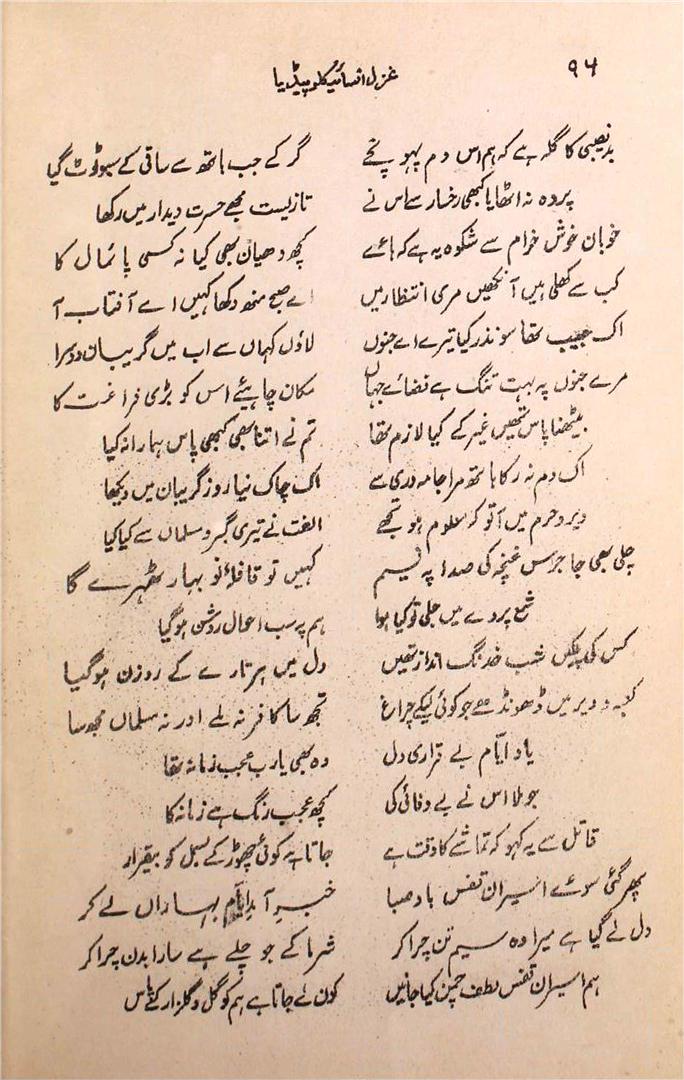 ۹۶ غزل انسائیکلوپیڈیا
بدنصیبی کا گلہ ہے کہ ہم اس دم پہونچے گر کے جب ہاتھ سے ساقی کے سبو ٹوٹ گیا
پردہ نہ اٹھایا کبھی رخسار سے اس نے تازیست مجھے حسرت دیدار میں رکھا
خوبان خوش خرام سے شکوہ یہ ہے کہ ہائے کچھ دھیان بھی کیا نہ کسی پائمال کا
کب سے کھلی ہیں آنکھیں مری انتظار میں اے صبح منھ دکھا کہیں اے آفتاب آ
اک جیب تھا سو نذر کیا تیرے اے جنوں لاؤں کہاں سے اب میں گریبان دوسرا
مرے جنوں پہ بہت تنگ ہے فضائے جہاں مکان چاہیئے اس کو بڑی فراغت کا
بیٹھنا پاس تمھیں غیر کے کیا لازم تھا تم نے اتنا بھی کبھی پاس ہمارا نہ کیا
اک دم نہ رکا ہاتھ مرا جامہ دری سے اک چاک نیا روز گریبان میں دیکھا
دیر و حرم میں آ تو کہ معلوم ہو تجھے الفت نے تیری گبر و مسلماں سے کیا کیا
چلی بھی جا جرس غنچہ کی صدا پہ نسیم کہیں تو قافلۂ نو بہار ٹھہرے گا
شمع پردے میں جلی تو کیا ہوا ہم پر سب احوال روشن ہو گیا
کس کی پلکیں شب خدنگ انداز تھیں دل میں ہر تارے کے روزن ہو گیا
کعبہ و دیر میں ڈھونڈے جو کوئی لیکے چراغ تجھ سا کافر نہ ملے اور نہ مسلماں مجھ سا
یاد ایّام بے قراری دل وہ بھی یارب عجب زمانہ تھا
جو لا اس نے بے وفائی کی کچھ عجب رنگ ہے زمانہ کا
قاتل سے یہ کہو کہ تماشے کا وقت ہے جاتا ہے کوئی چھوڑ کے بسمل کو بیقرار
پھر گئی سوئے اسیران قفس باد صبا خبر آمد ایّام بہاراں لے کر
دل لے گیا ہے میرا وہ سیم تن چرا کر شرما کے جو چلے ہے سارا بدن چرا کر
ہم اسیران قفس لطف چمن کیا جانیں کون لے جاتا ہے ہم کو گل و گلزار کے پاس